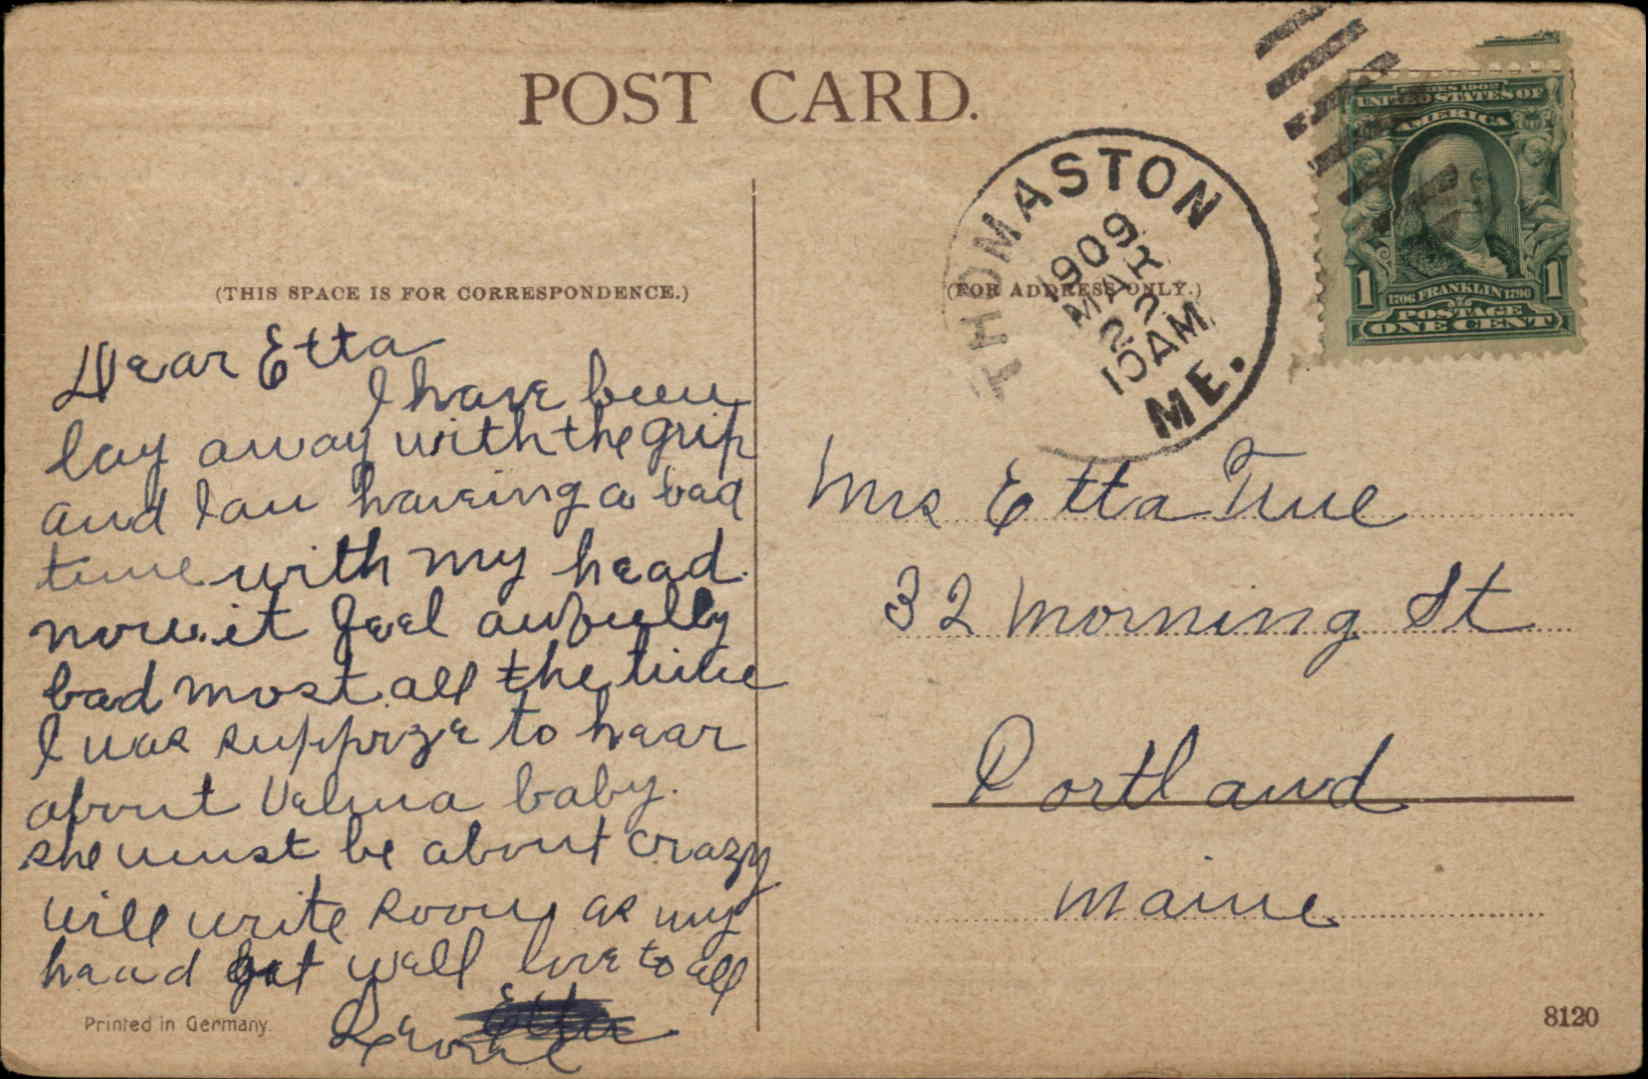 POST CARD.
THOMASTON
1909
MAR
22
10AM
ME.
SERIES 1902
UNITED STATES OF
AMERICA
1 1
1706 FRANKLIN 1790
POSTAGE
ONE CENT
(THIS SPACE IS FOR CORRESPONDENCE.)
(FOR ADDRESS ONLY.)
Dear Etta
I have been
lay away with the grip
and I am haveing a bad
time with my head.
now. it feel awfully
bad most all the time
I was supprize to hear
about Velma baby.
she must be about crazy
will write soon as my
head get well love to all
Etta
Mrs Etta True
32 Morning St
Portland
Maine
Printed in Germany.
8120